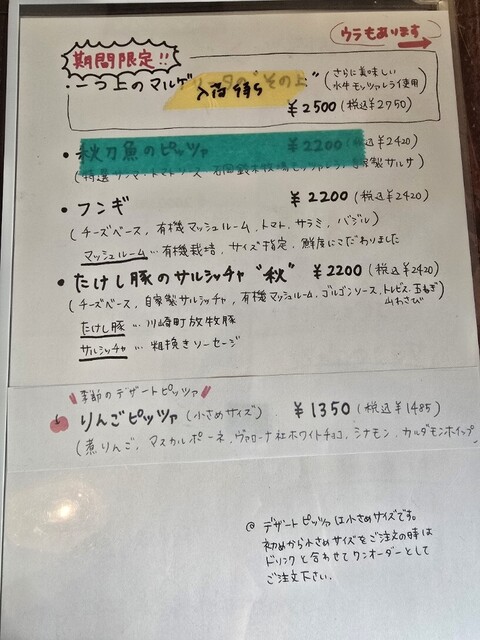 ウラもあります
期間限定!!
・一つ上のマルゲリータの"その上"
入荷待ち
さらに美味しい
水牛モッツァレラ使用
¥2500(税込¥2750)
・秋刀魚のピッツァ ¥2200(税込¥2420)
・フンギ ¥2200(税込¥2420)
(チーズベース、有機マッシュルーム、トマト、サラミ、バジル)
マッシュルーム…有機栽培、サイズ指定、鮮度にこだわりました
・たけし豚のサルシッチャ"秋" ¥2200(税込¥2420)
(チーズベース、自家製サルシッチャ、有機マッシュルーム、ゴルゴンソース、トレビス、玉ねぎ
山わさび)
たけし豚…川崎町放牧豚
サルシッチャ…粗挽きソーセージ
季節のデザートピッツァ
りんごピッツァ(小さめサイズ) ¥1350(税込¥1485)
(煮りんご、マスカルポーネ、ヴァローナ社ホワイトチョコ、シナモン、カルダモンホイップ)
@ デザートピッツァは小さめサイズです。
初めから小さめサイズをご注文の時は
ドリンクと合わせてワンオーダーとして
ご注文下さい。